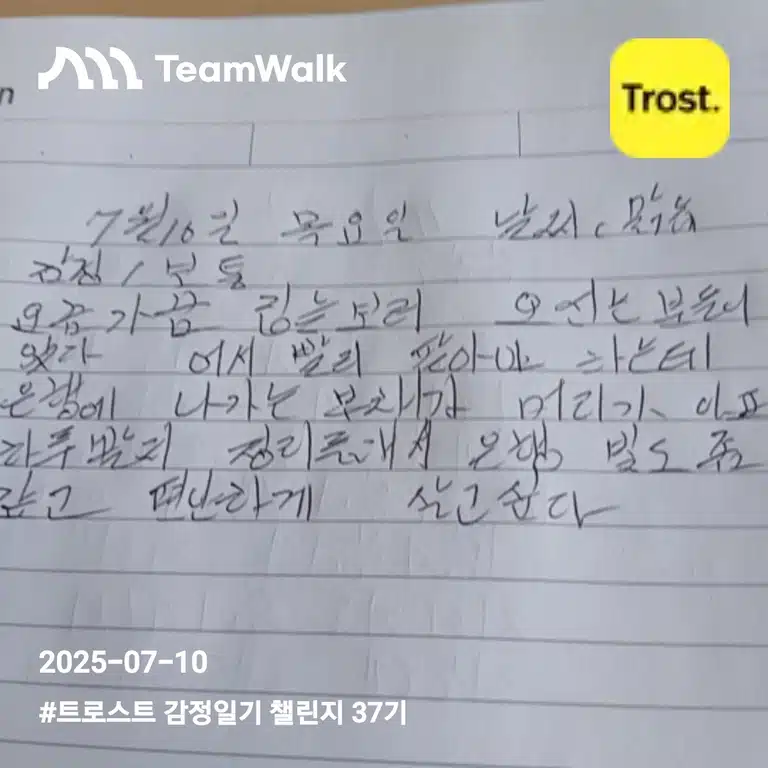 n
TeamWalk
Trost.
7월10일 목요일 날씨. 맑음
감정 / 보통
요즘가끔 보러 오신는 분들이
있다 어서 빨리 팔아야 하는데
은행에 나가는 머리가 아프
하루빨리 정리 은행 빚도 좀
갚고 편난하게 살고싶다
2025-07-10
#트로스트 감정일기 챌린지 37기